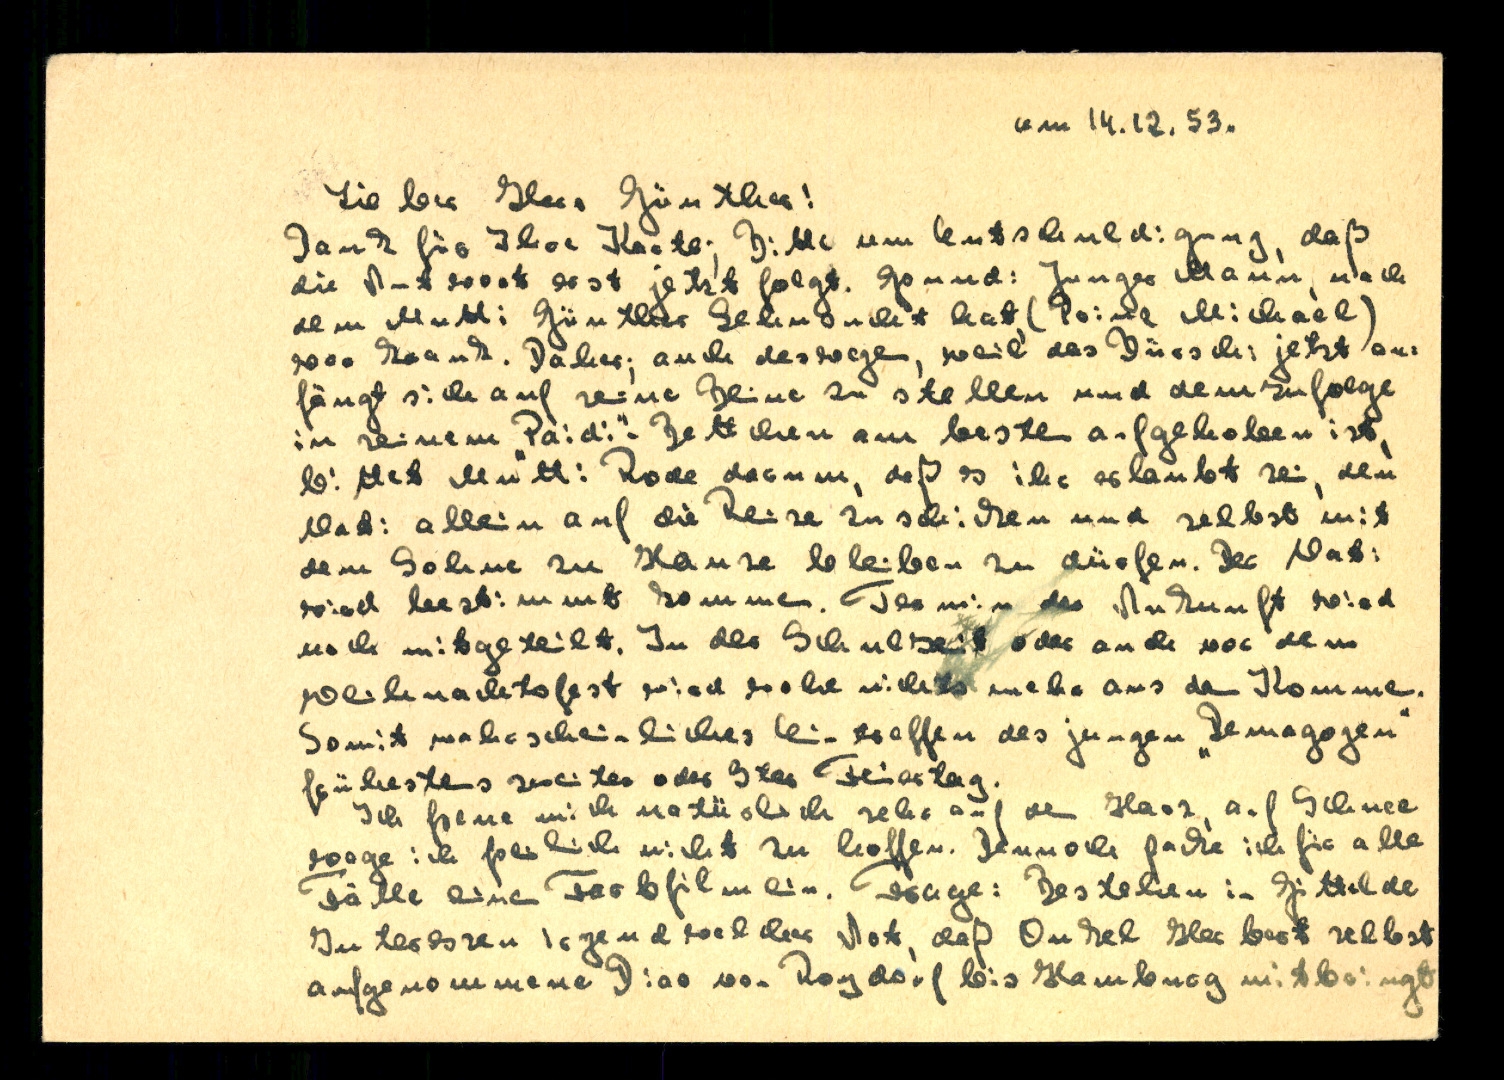 am 14.12.53.
Lieber Herr Günther!
Dank für Ihre Karte; Bitte um Entschuldigung, daß
die Antwort erst jetzt folgt. Grund: Junger Mann, nach
dem Mutti Günther Sehnsucht hat, (Prinz Michael)
war krank. Daher; auch deswegen, weil das Bürschi jetzt an-
fängt sich auf seine Beine zu stellen und demzufolge
in seinem "Paidi"-Bettchen am besten aufgehoben ist,
bittet Mutti Rode darum, daß es ihr erlaubt sei, den
Vati allein auf die Reise zu schicken und selbst mit
dem Sohne zu Hause bleiben zu dürfen. Der Vati
wird bestimmt kommen. Termin der Ankunft wird
noch mitgeteilt. In der Schulzeit oder auch vor dem
Weihnachtsfest wird wohl nichts mehr aus dem Kommen.
Somit wahrscheinliches Eintreffen des jungen „Demagogen"
frühestens zweiter oder 3ter Feiertag.
Ich freue mich natürlich sehr auf den Harz, auf Schnee
wage ich freilich nicht zu hoffen. Dennoch packe ich für alle
Fälle einen Farbfilm ein. Frage: Bestehen in Gittelde
Interessen irgendwelcher Art, daß Onkel Herbert selbst
aufgenommene Dias von Roydorf bis Hamburg mitbringt